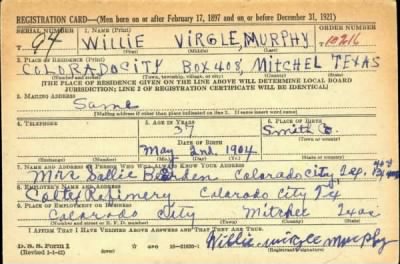 REGISTRATION CARD—(Men born on or after February 17, 1897 and on or before December 31, 1921)
SERIAL NUMBER 1. NAME (Print) ORDER NUMBER
94 WILLIE VIRGLE MURPHY 10216
(First) (Middle) (Last)
2. PLACE OF RESIDENCE (Print)
COLORADO CITY BOX 408 MITCHEL TEXAS
(Number and street) (Town, township, village, or city) (County) (State)
[THE PLACE OF RESIDENCE GIVEN ON THE LINE ABOVE WILL DETERMINE LOCAL BOARD
JURISDICTION; LINE 2 OF REGISTRATION CERTIFICATE WILL BE IDENTICAL]
3. MAILING ADDRESS
Same
[Mailing address if other than place indicated on line 2. If same insert word same]
4. TELEPHONE 5. AGE IN YEARS 6. PLACE OF BIRTH
37 Smith Co.
DATE OF BIRTH (Town or county)
May 2nd 1904
(Exchange) (Number) (Mo.) (Day) (Yr.) (State or country)
7. NAME AND ADDRESS OF PERSON WHO WILL ALWAYS KNOW YOUR ADDRESS
Mrs Sallie Colorado City Tex
8. EMPLOYER'S NAME AND ADDRESS
Coltex Refinery Colorado City Tex
9. PLACE OF EMPLOYMENT OR BUSINESS
Colorado City Mitchel Texas
(Number and street or R. F. D. number) (Town) (County) (State)
I AFFIRM THAT I HAVE VERIFIED ABOVE ANSWERS AND THAT THEY ARE TRUE.
D. S. S. FORM 1
(Revised 1-1-42) Willie Virgle Murphy